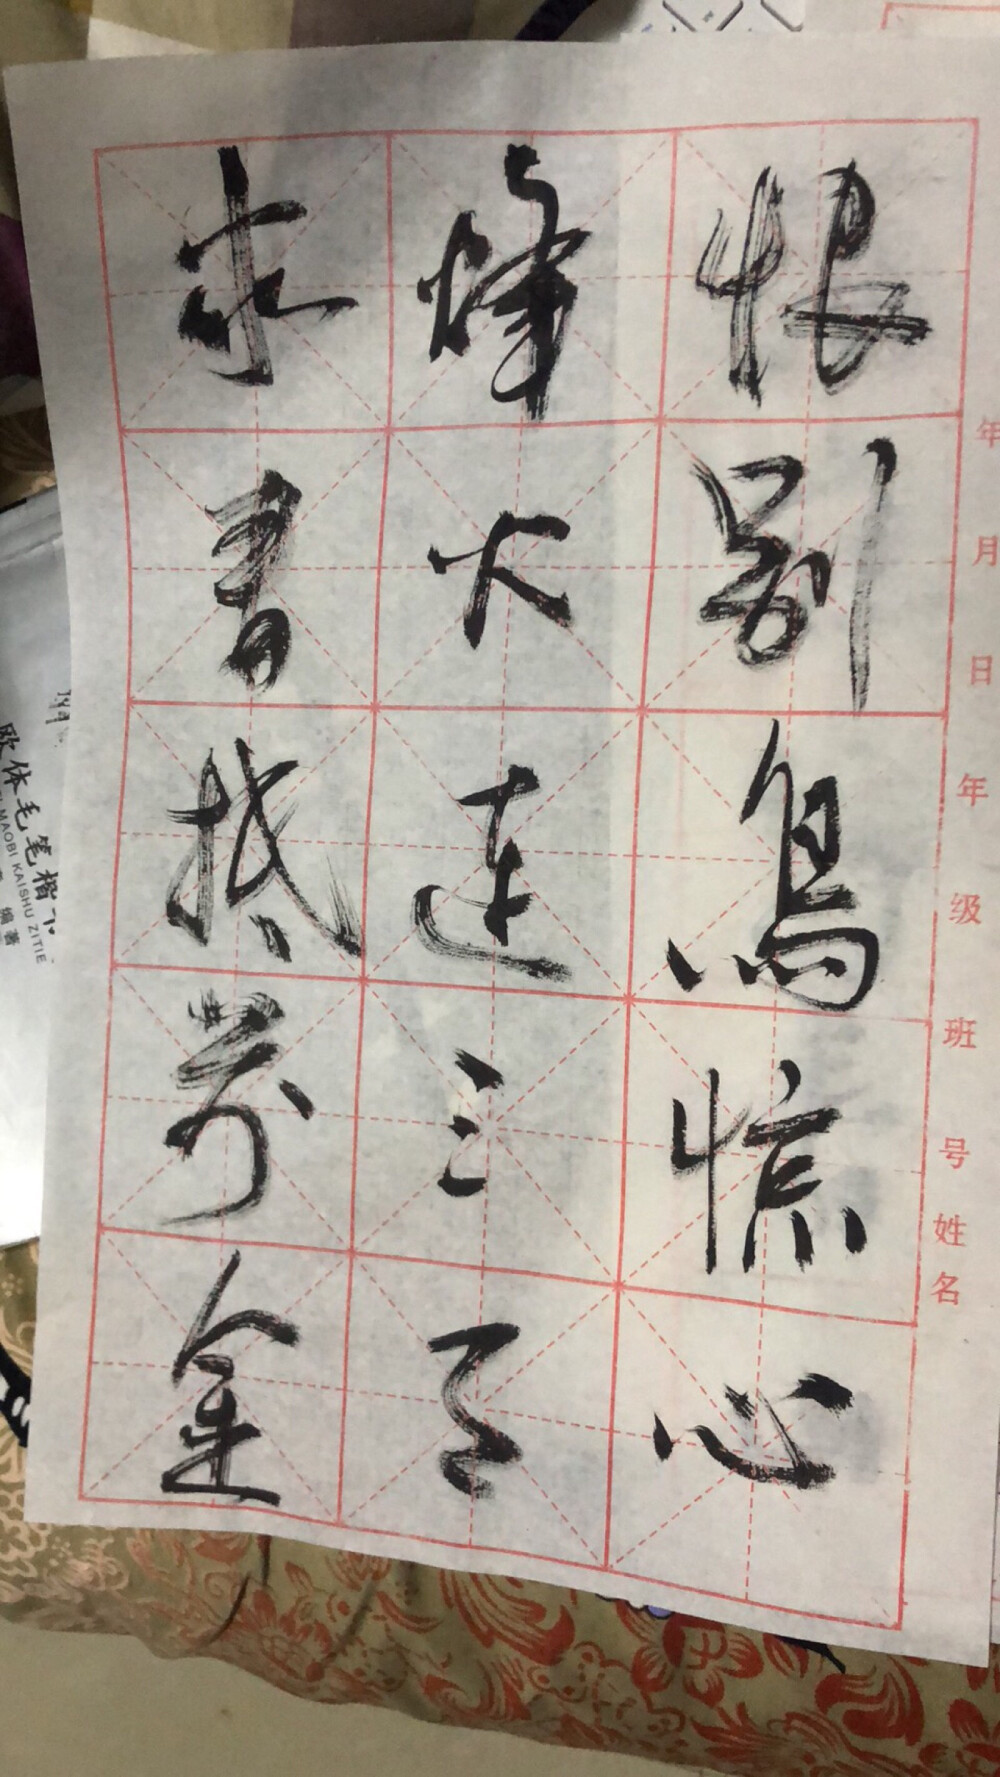 恨别鳥惊心
烽火連三月
家書抵萬金
年 月 日 年 级 班 号 姓名
欧体毛笔楷
MAOBI KAISHU ZITIE
编著